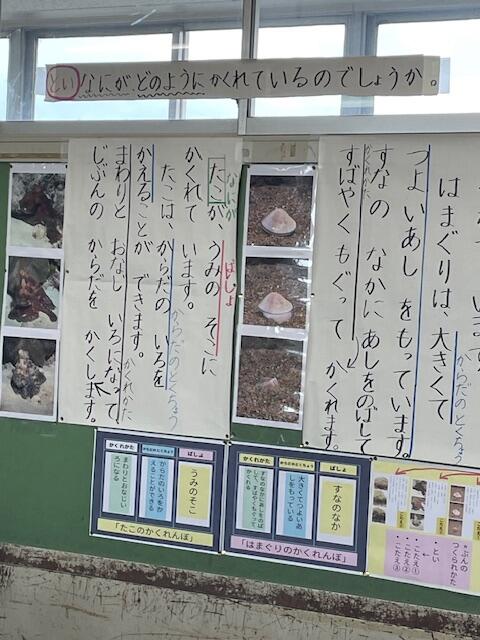 とい なにが、どのようにかくれているのでしょうか。
はまぐりは、大きくて
からだのとくちょう
つよいあしをもっています。
すなの なかに あしをのばして
かくれかた
すばやくもぐって かくれます。
なにが
たこが、うみの そこに
ばしょ
かくれて います。
たこは、からだの いろを
からだのとくちょう
かえることが できます。
まわりと おなじ いろになって、
かくれかた
じぶんの からだを かくします。
ばしょ
うみのそこ
からだのとくちょう
からだのいろをかえることができる
かくれかた
まわりとおなじいろになる
「たこのかくれんぼ」
ばしょ
すなのなか
からだのとくちょう
大きくてつよいあしをもっている
かくれかた
すなのなかにあしをのばして、すばやくもぐってかくれる
「はまぐりのかくれんぼ」
ぶんの
つくられかた
・とい
・こたえ①
・こたえ②
・こたえ③